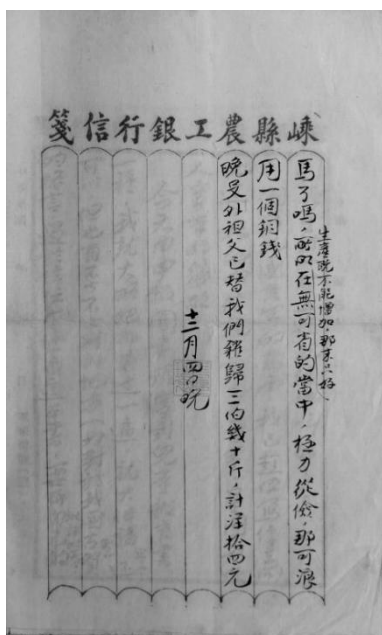 嵊縣農工銀行信箋
生產既不能增加，那末只好、
馬了嗎，所以在無可省的當中，極力從儉，那可浪
用一個銅錢
晚受外祖父已替我們糴歸三百幾十斤，計洋拾四元
十二月四日晚